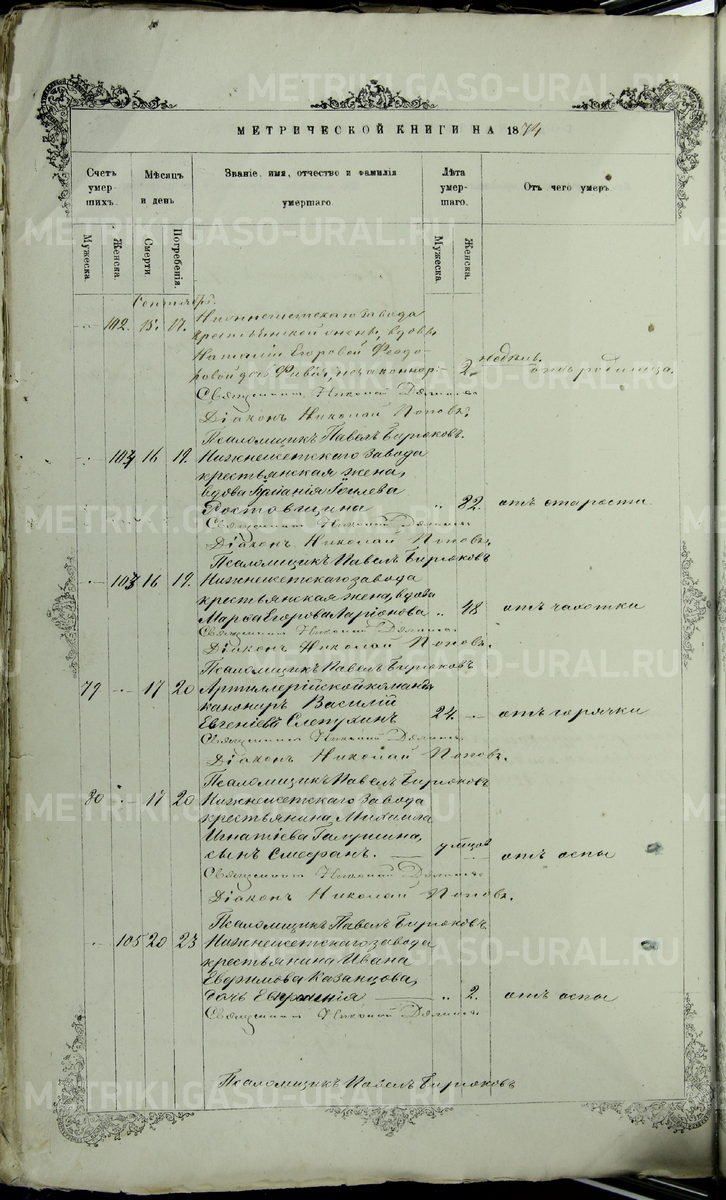 МЕТРИЧЕСКОЙ КНИГИ НА 1874
Счетъ умершихъ.
Мѣсяцъ и день
Званіе, имя, отчество и фамилія умершаго.
Лѣта умершаго.
Отъ чего умеръ.
Мужеска.
Женска.
Смерти
Погребенія.
Мужеска.
Женска.
Сентябрь.
102. 15. 17. Нижнеисетскаго завода
крестьянской жены, вдовы
Наталіи Егоровой Федо-
ровой дочь незаконнор: 2. недѣль. отъ родимца.
Священникъ Николай
Діаконъ Николай Поповъ.
Псаломщикъ Павелъ Бирюковъ.
103 16 19. Нижнеисетскаго завода
крестьянская жена,
вдова
Ростовщина " 82. отъ старости
Священникъ Николай
Діаконъ Николай Поповъ.
Псаломщикъ Павелъ Бирюковъ
16 19. Нижнеисетскаго завода
крестьянская жена, вдова
Марѳа Егорова Ларіонова " 48 отъ чахотки
Священникъ Николай
Діаконъ Николай Поповъ.
Псаломщикъ Павелъ Бирюковъ
79 17 20 Артиллерійской команды
канониръ Василій
Евгеніевъ Слепухинъ 24. отъ горячки
Священникъ Николай
Діаконъ Николай Поповъ.
Псаломщикъ Павелъ Бирюковъ
80 17 20 Нижнеисетскаго завода
крестьянина Михаила
Игнатіева Галушина,
сынъ Стефанъ. отъ оспы
Священникъ Николай
Діаконъ Николай Поповъ.
Псаломщикъ Павелъ Бирюковъ.
105 20 23 Нижнеисетскаго завода
крестьянина Ивана
Евфимова Казанцова,
дочь " 2. отъ оспы
Священникъ Николай
Псаломщикъ Павелъ Бирюковъ
METRIKI.GASO-URAL.RU